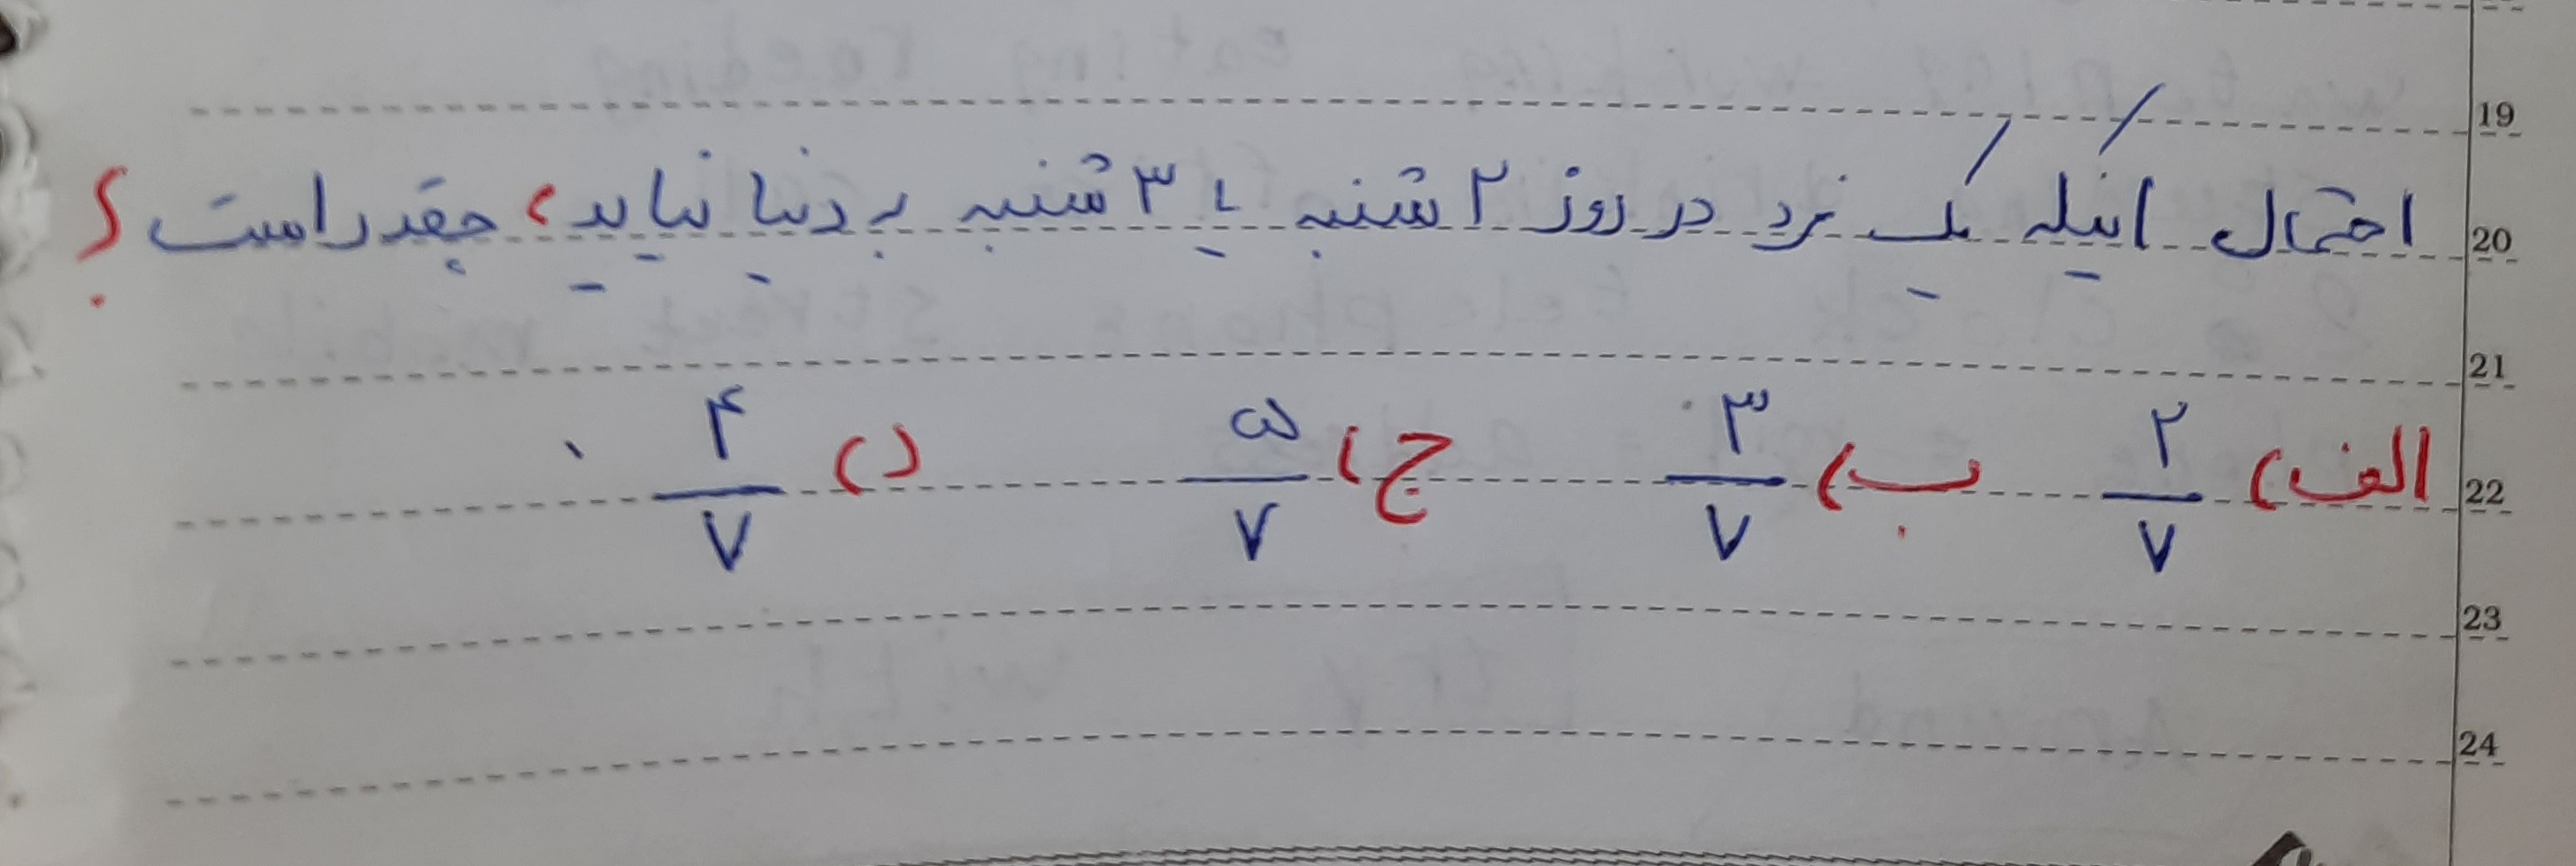 19
احتمال اینکه یک فرد در روز ۲ شنبه یا ۳ شنبه به دنیا نیاید، چقدر است؟ 20
21
الف) ۲/۷ ب) ۳/۷ ج) ۵/۷ د) ۴/۷ 22
23
24